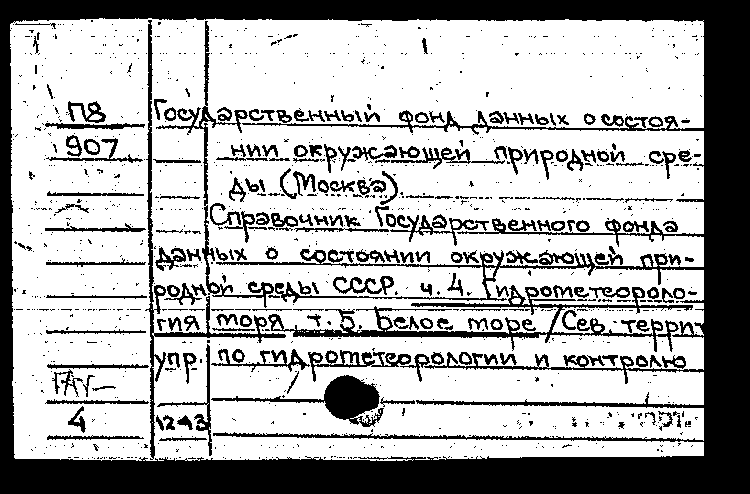 П8
907
Государственный фонд данных о состоя-
нии окружающей природной сре-
ды (Москва).
Справочник Государственного фонда
данных о состоянии окружающей при-
родной среды СССР. ч. 4. Гидрометеороло-
гия моря т. 5. Белое море /Сев. террит
упр. по гидрометеорологии и контролю
4
1243